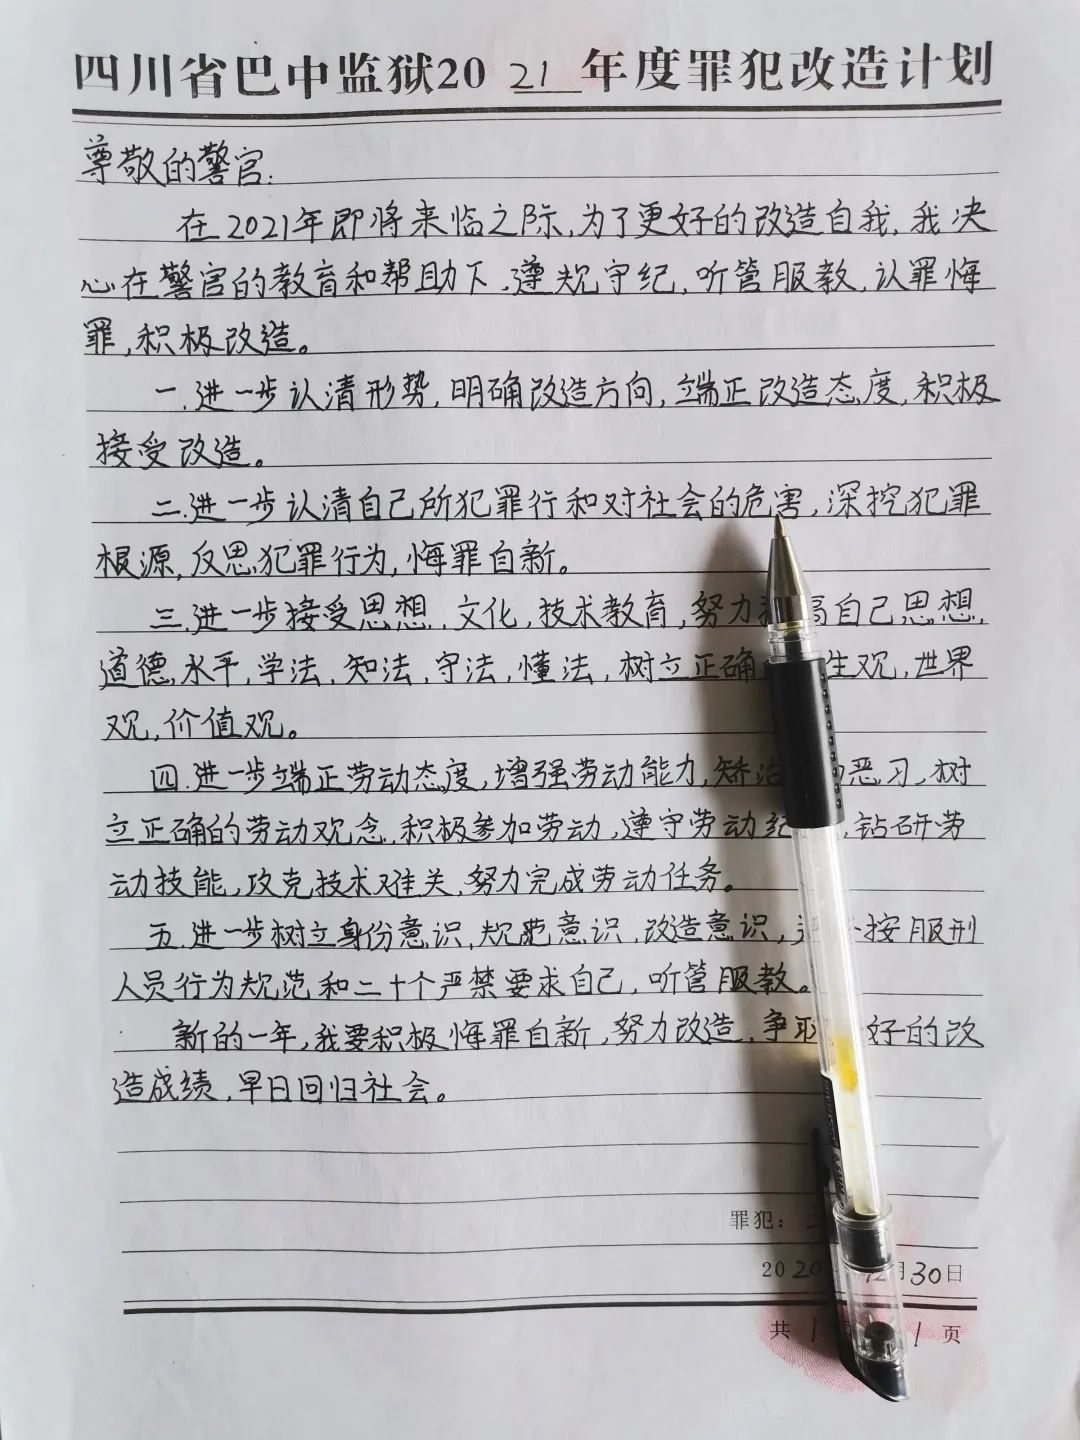 四川省巴中监狱2021年度罪犯改造计划
尊敬的警官:
在2021年即将来临之际,为了更好的改造自我,我决
心在警官的教育和帮助下,遵规守纪,听管服教,认罪悔
罪,积极改造。
一.进一步认清形势,明确改造方向,端正改造态度,积极
接受改造。
二.进一步认清自己所犯罪行和对社会的危害,深挖犯罪
根源,反思犯罪行为,悔罪自新。
三.进一步接受思想,文化,技术教育,努力高自己思想,
道德,水平,学法,知法,守法,懂法,树立正确生观,世界
观,价值观。
四.进一步端正劳动态度,增强劳动能力,矫治恶习,树
立正确的劳动观念,积极参加劳动,遵守劳动纪,钻研劳
动技能,攻克技术难关,努力完成劳动任务。
五.进一步树立身份意识,规范意识,改造意识,按服刑
人员行为规范和二十个严禁要求自己,听管服教。
新的一年,我要积极悔罪自新,努力改造,争取好的改
造成绩,早日回归社会。
罪犯:
2020 12月30日
共1 1页